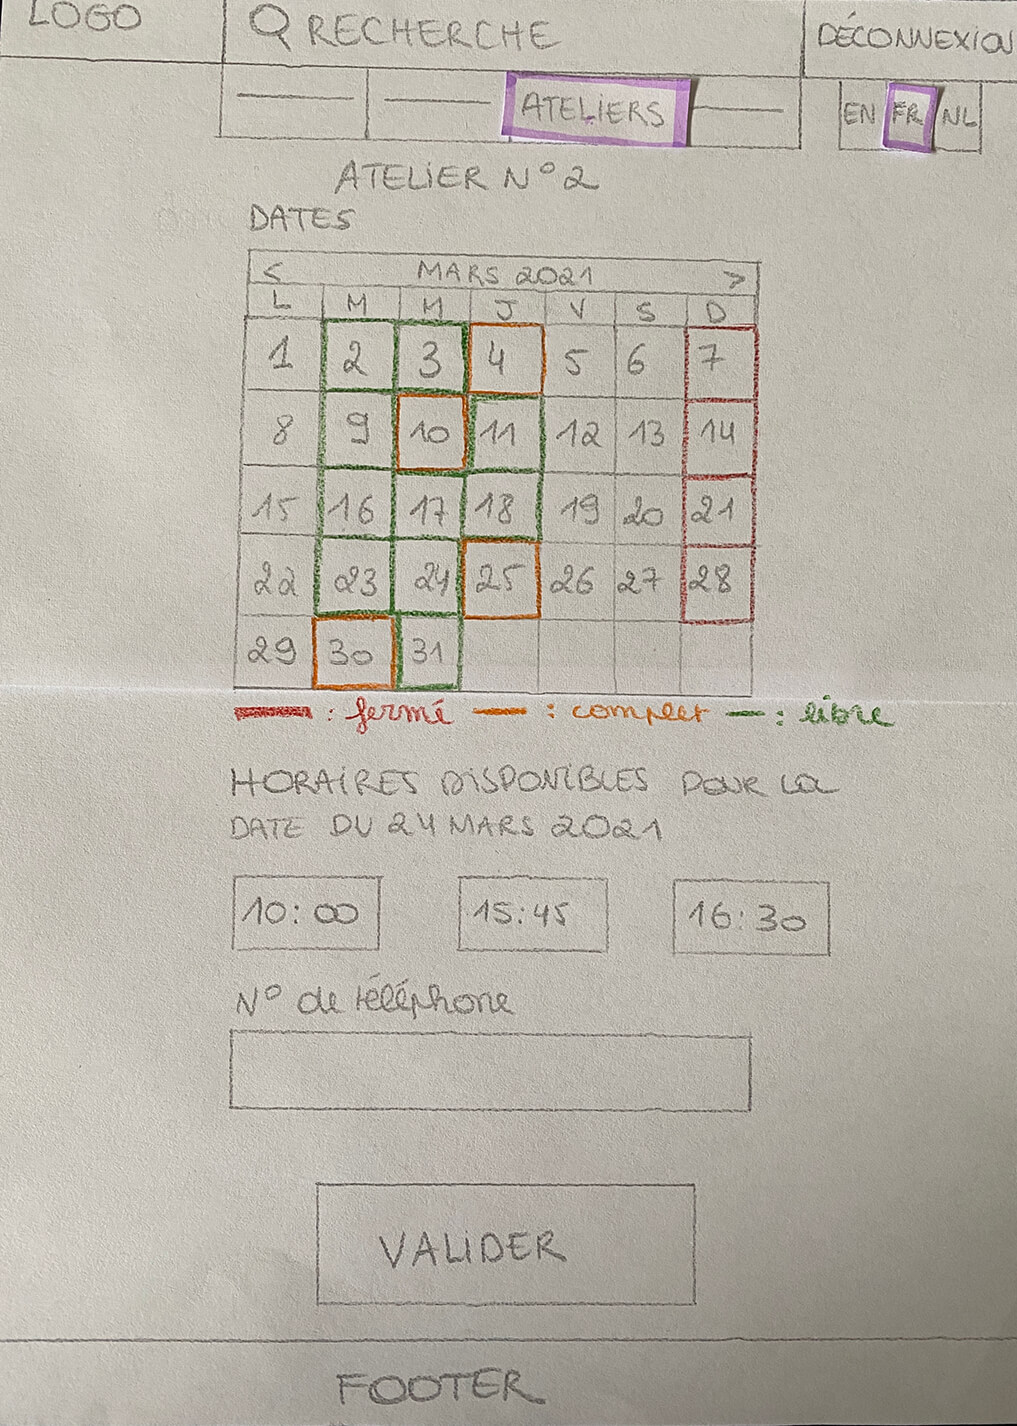 LOGO
RECHERCHE
DÉCONNEXION
ATELIERS
EN FR NL
ATELIER N° 2
DATES
< MARS 2021 >
L M M J V S D
1 2 3 4 5 6 7
8 9 10 11 12 13 14
15 16 17 18 19 20 21
22 23 24 25 26 27 28
29 30 31
: fermé : complet : libre
HORAIRES DISPONIBLES POUR La
DATE DU 24 MARS 2021
10:00 15:45 16:30
N° de téléphone
VALIDER
FOOTER